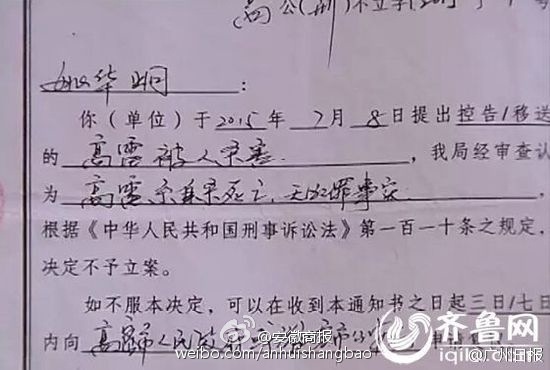 高公(刑)不立字[2015]
姚华炯：
你（单位）于2015年7月8日提出控告/移送
的高雷被人杀害，我局经审查认
为高雷系某某死亡，无犯罪事实，
根据《中华人民共和国刑事诉讼法》第一百一十条之规定，
决定不予立案。
如不服本决定，可以在收到本通知书之日起三日/七日
内向高
安徽商报
weibo.com/anhuishangbao
齐鲁网
iqilu.com
@广州日报